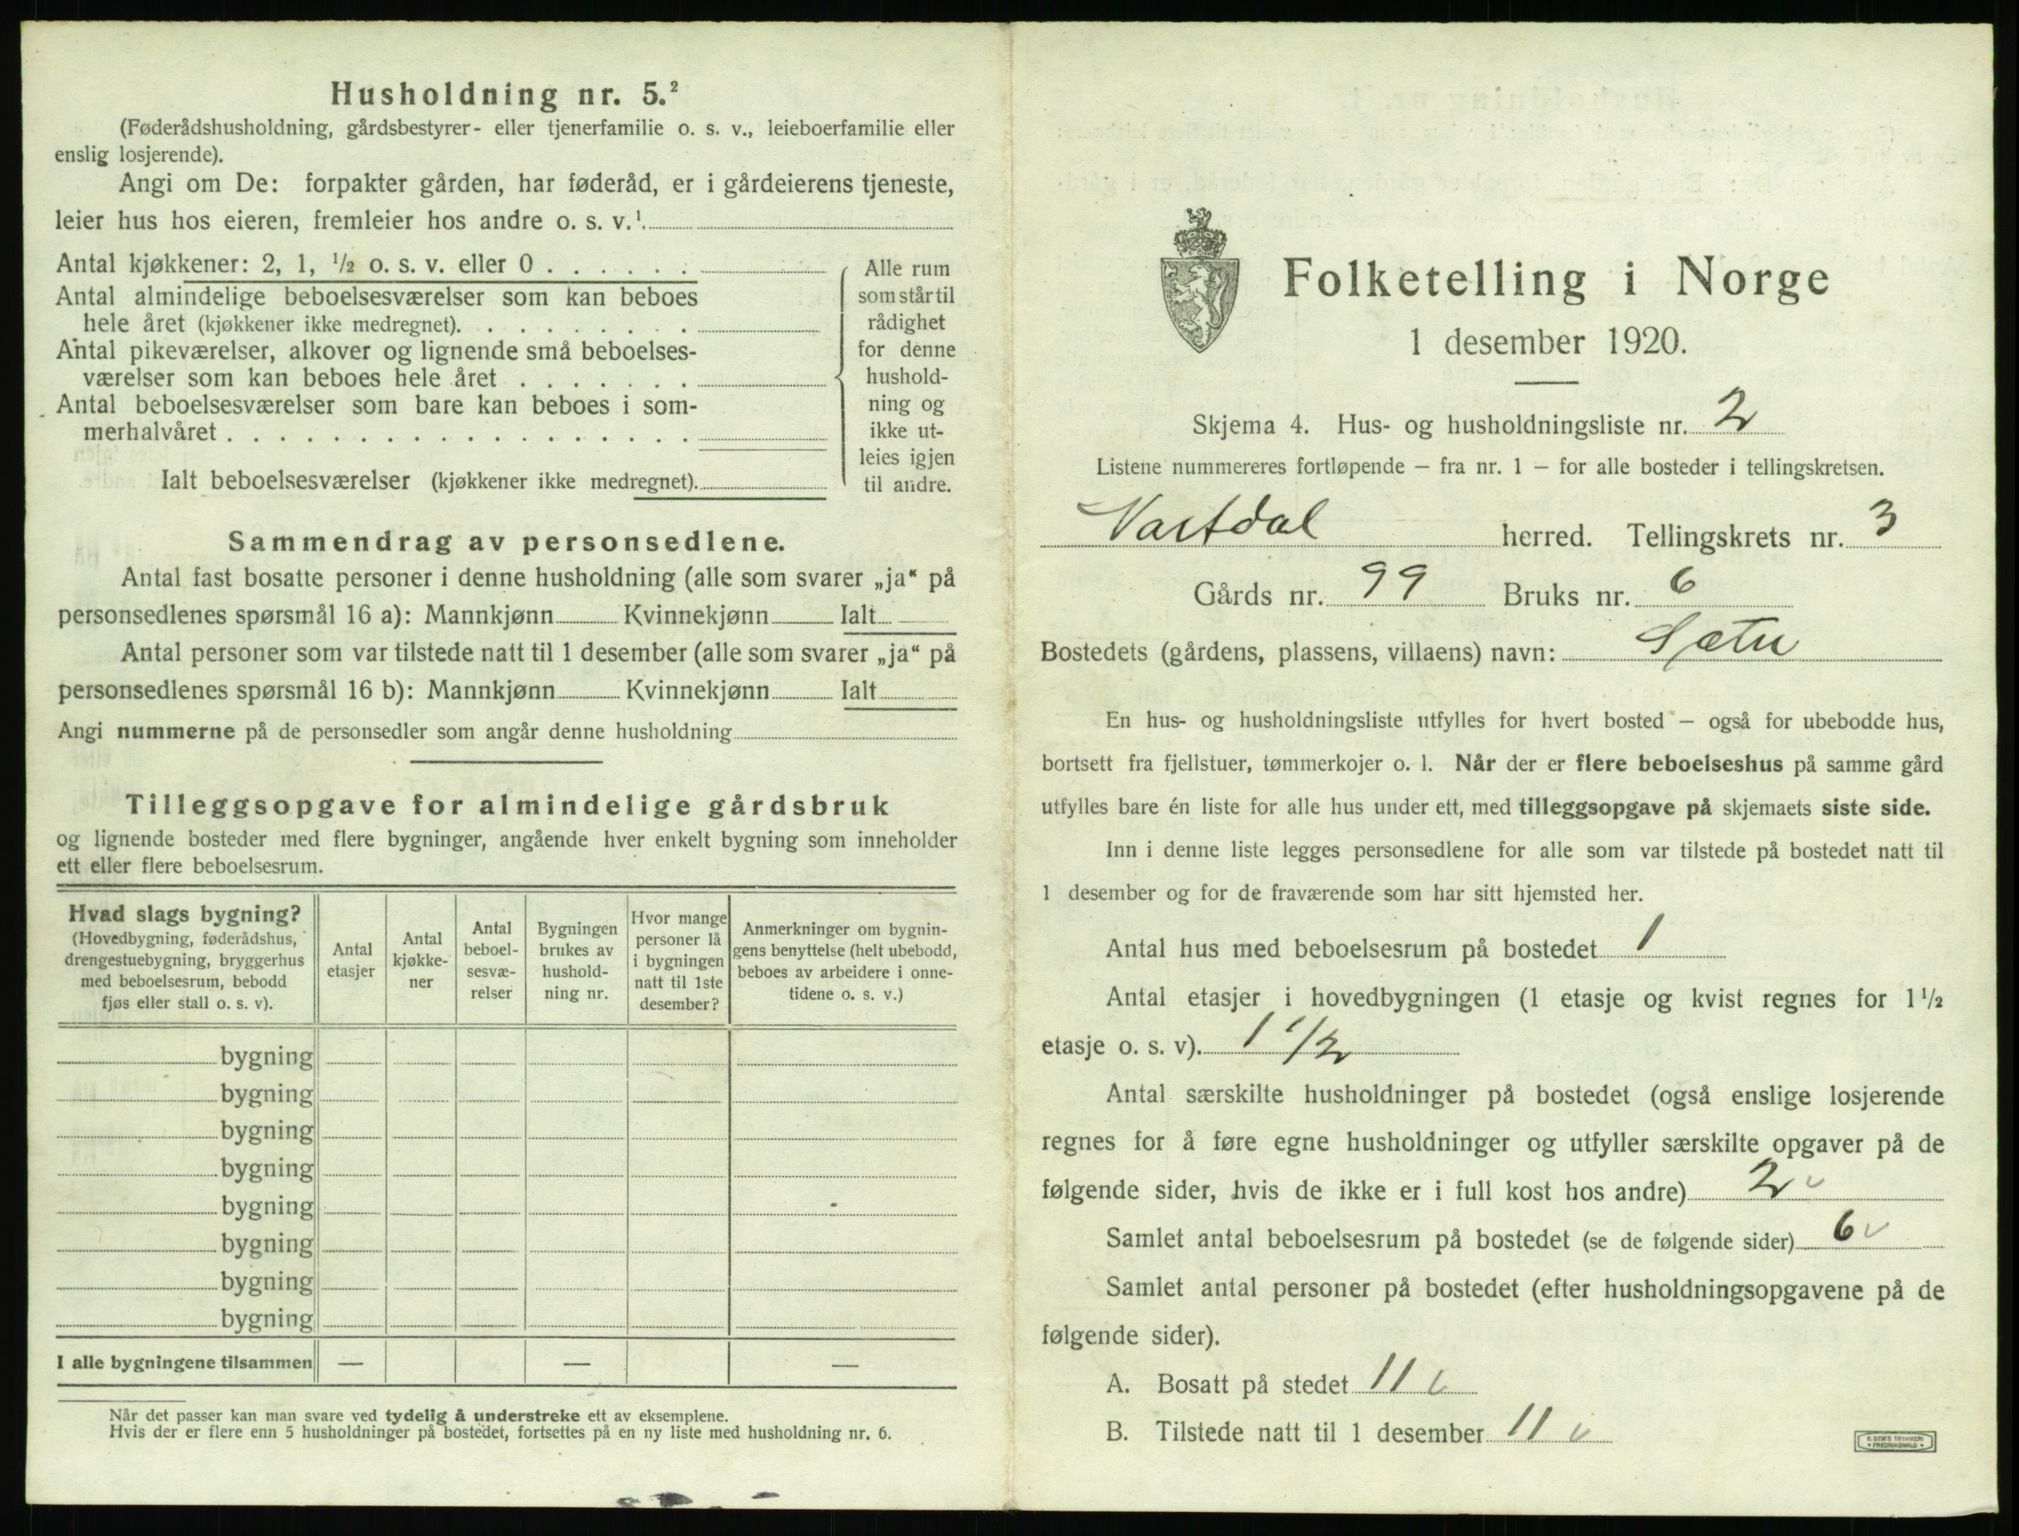 Husholdning nr. 5.²
(Føderådshusholdning, gårdsbestyrer- eller tjenerfamilie o. s. v., leieboerfamilie eller
enslig losjerende).
Angi om De: forpakter gården, har føderåd, er i gårdeierens tjeneste,
leier hus hos eieren, fremleier hos andre o. s. v.¹
Antal kjøkkener: 2, 1, ½ o. s. v. eller 0 . . . . . .
Antal almindelige beboelsesværelser som kan beboes
hele året (kjøkkener ikke medregnet). . . . . . . . .
Antal pikeværelser, alkover og lignende små beboelses-
værelser som kan beboes hele året . . . . . . .
Antal beboelsesværelser som bare kan beboes i som-
merhalvåret . . . . . . . . . . . . . . . . . .
Ialt beboelsesværelser (kjøkkener ikke medregnet).
Alle rum
som står til
rådighet
for denne
hushold-
ning og
ikke ut-
leies igjen
til andre.
Sammendrag av personsedlene.
Antal fast bosatte personer i denne husholdning (alle som svarer „ja“ på
personsedlenes spørsmål 16 a): Mannkjønn Kvinnekjønn Ialt
Antal personer som var tilstede natt til 1 desember (alle som svarer „ja“ på
personsedlenes spørsmål 16 b): Mannkjønn Kvinnekjønn Ialt
Angi nummerne på de personsedler som angår denne husholdning
Tilleggsopgave for almindelige gårdsbruk
og lignende bosteder med flere bygninger, angående hver enkelt bygning som inneholder
ett eller flere beboelsesrum.
Hvad slags bygning?
(Hovedbygning, føderådshus,
drengestuebygning, bryggerhus
med beboelsesrum, bebodd
fjøs eller stall o. s. v).
Antal
etasjer
Antal
kjøkke-
ner
Antal
beboel-
sesvæ-
relser
Bygningen
brukes av
hushold-
ning nr.
Hvor mange
personer lå
i bygningen
natt til 1ste
desember?
Anmerkninger om bygnin-
gens benyttelse (helt ubebodd,
beboes av arbeidere i onne-
tidene o. s. v.)
bygning
bygning
bygning
bygning
bygning
bygning
bygning
bygning
I alle bygningene tilsammen — — —
Når det passer kan man svare ved tydelig å understreke ett av eksemplene.
Hvis der er flere enn 5 husholdninger på bostedet, fortsettes på en ny liste med husholdning nr. 6.
Folketelling i Norge
1 desember 1920.
Skjema 4. Hus- og husholdningsliste nr. 2
Listene nummereres fortløpende – fra nr. 1 – for alle bosteder i tellingskretsen.
Vartdal herred. Tellingskrets nr. 3
Gårds nr. 99 Bruks nr. 6
Bostedets (gårdens, plassens, villaens) navn: Sætu
En hus- og husholdningsliste utfylles for hvert bosted – også for ubebodde hus,
bortsett fra fjellstuer, tømmerkojer o. l. Når der er flere beboelseshus på samme gård
utfylles bare én liste for alle hus under ett, med tilleggsopgave på skjemaets siste side.
Inn i denne liste legges personsedlene for alle som var tilstede på bostedet natt til
1 desember og for de fraværende som har sitt hjemsted her.
Antal hus med beboelsesrum på bostedet 1
Antal etasjer i hovedbygningen (1 etasje og kvist regnes for 1½
etasje o. s. v). 1 1/2
Antal særskilte husholdninger på bostedet (også enslige losjerende
regnes for å føre egne husholdninger og utfyller særskilte opgaver på de
følgende sider, hvis de ikke er i full kost hos andre) 2
Samlet antal beboelsesrum på bostedet (se de følgende sider) 6
Samlet antal personer på bostedet (efter husholdningsopgavene på de
følgende sider).
A. Bosatt på stedet 11
B. Tilstede natt til 1 desember 11